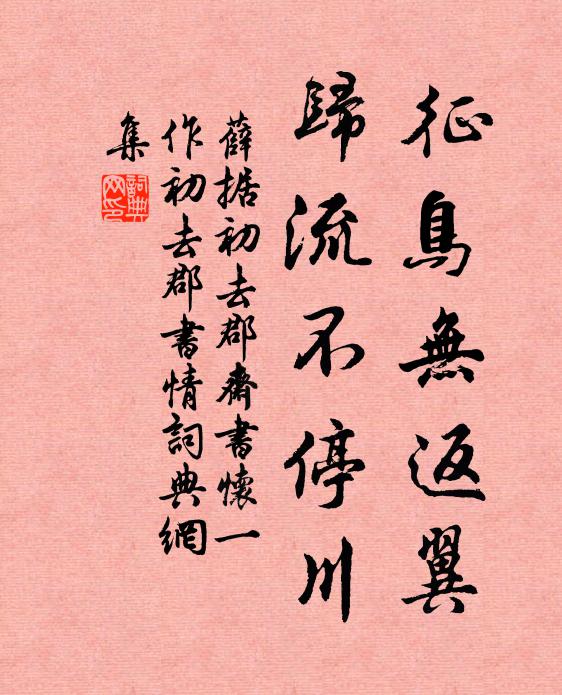 征鳥無返翼
歸流不停川
薛据初去郡齋書懷一
作初去郡書情詞典網
集
詞典
网印